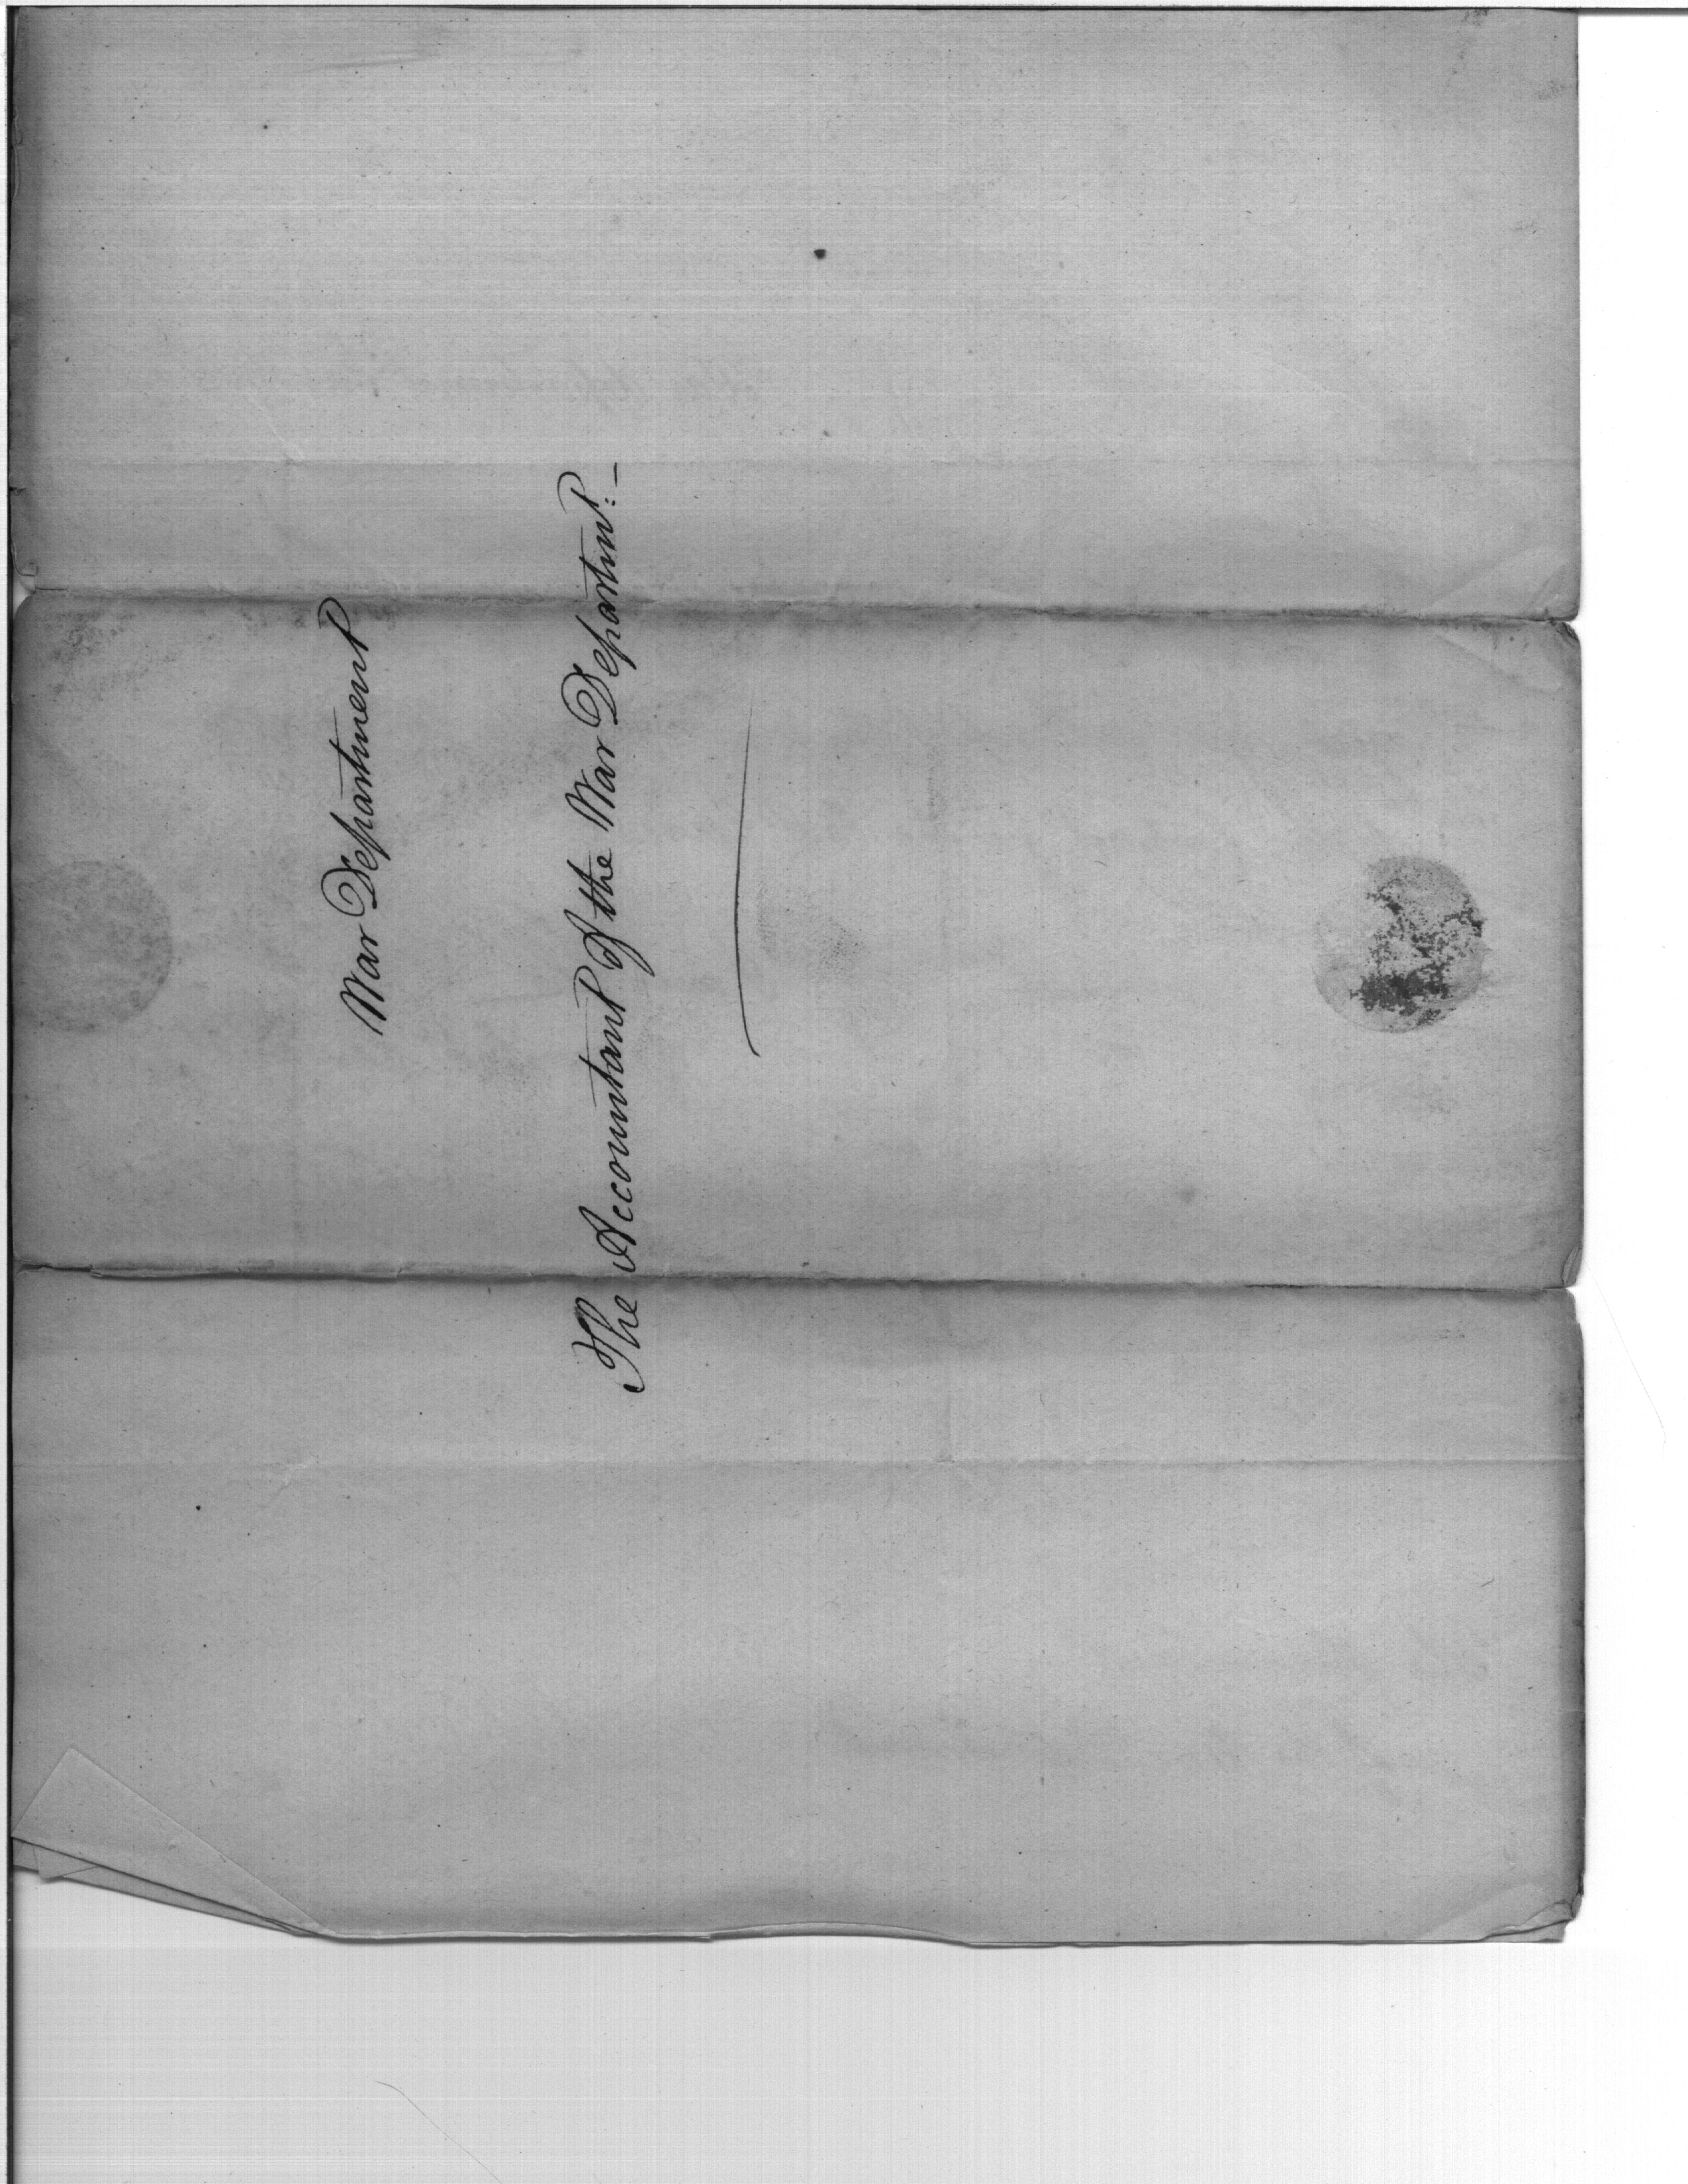 War Department
The Accountant of the War Departmt:—